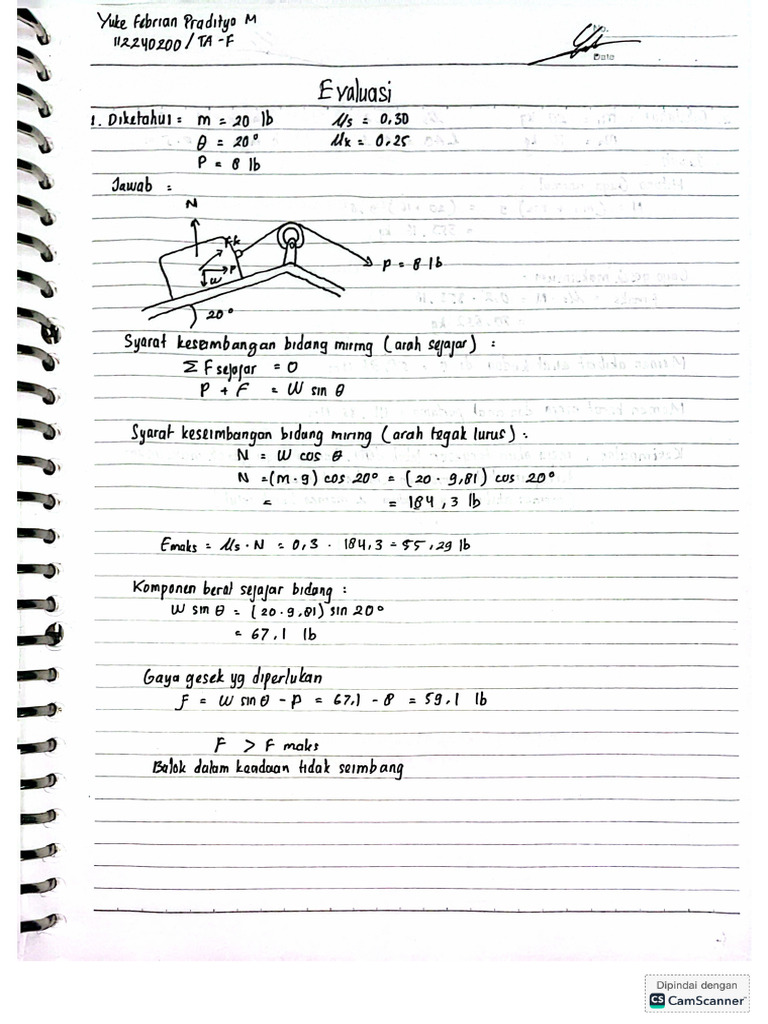 Yuke Febrian Pradityo M
112240200 / TA - F
No.
Date
Evaluasi
1. Diketahui = m = 20 lb    μs = 0,30
θ = 20°    μk = 0,25
P = 8 lb
Jawab =
N
Fk
P
w
P = 8 lb
20°
Syarat keseimbangan bidang miring (arah sejajar) :
Σ F sejajar = 0
P + F = W sin θ
Syarat keseimbangan bidang miring (arah tegak lurus) :
N = W cos θ
N = (m . g) cos 20° = (20 . 9,81) cos 20°
= = 184,3 lb
Fmaks = μs . N = 0,3 . 184,3 = 55,29 lb
Komponen berat sejajar bidang :
W sin θ = (20 . 9,81) sin 20°
= 67,1 lb
Gaya gesek yg diperlukan
F = W sin θ - P = 67,1 - 8 = 59,1 lb
F > F maks
Balok dalam keadaan tidak seimbang
Dipindai dengan
CS CamScanner